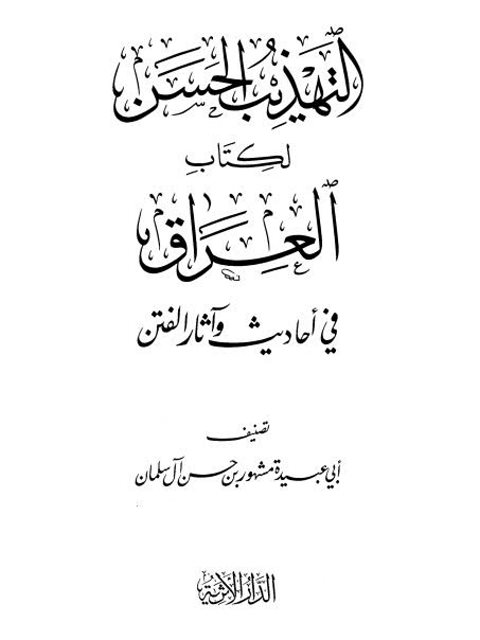 التهذيب الحسن
لكتاب
العراق
في أحاديث وآثار الفتن
تصنيف
أبي عبيدة مشهور بن حسن آل سلمان
الدار الأثرية